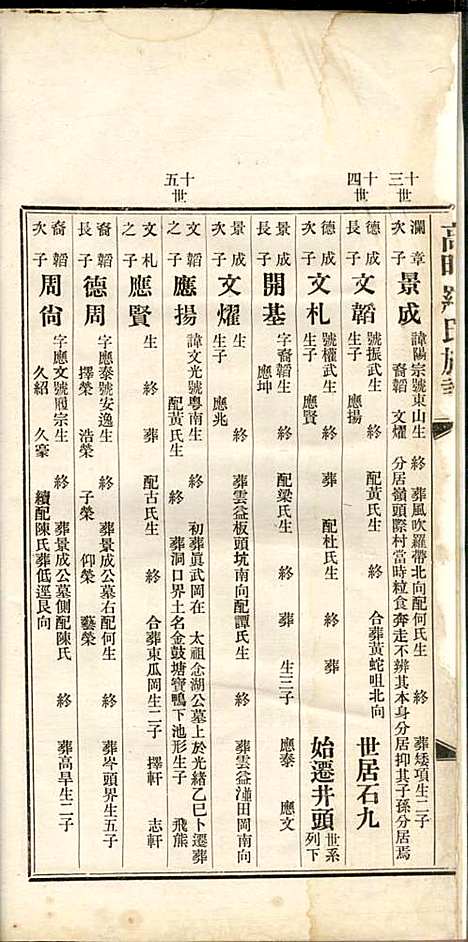 高明羅氏族譜
十三世
瀾章次子 景成 諱陽宗號東山生 終 葬風吹羅帶北向配何氏生 終 葬矮項生二子
裔韜 文燿 分居嶺頭際村當時粒食奔走不辨其本身分居抑其子孫分居焉
十四世
德成長子 文韜 號振武生 終 葬 配黃氏生 終 合葬黃蛇咀北向 世居石九
生子 應揚
德成次子 文札 號權武生 終 葬 配杜氏生 終 葬 始遷井頭 世系列下
生子 應賢
景成長子 開基 字裔韜生 終 葬 配梁氏生 終 葬 生三子 應泰 應文
應坤
景成次子 文燿 生 終 葬雲益板頭坑南向配譚氏生 終 葬雲益㵯田岡南向
生子 應兆
十五世
文韜之子 應揚 諱文光號粵南生 終 初葬眞武岡在 太祖念湖公墓上於光緒乙巳卜遷葬
配黃氏生 終 葬洞口界土名金鼓塘寶鴨下池形生子 飛熊
文札之子 應賢 生 終 葬 配古氏生 終 合葬東瓜岡生二子 擇軒 志軒
裔韜長子 德周 字應泰號安逸生 終 葬景成公墓右配何生 終 葬岑頭界生五子
擇榮 浩榮 子榮 仰榮 藝榮
裔韜次子 周尙 字應文號履宗生 終 葬景成公墓側配陳氏 終 葬高旱生二子
久紹 久豪 續配陳氏葬低逕艮向